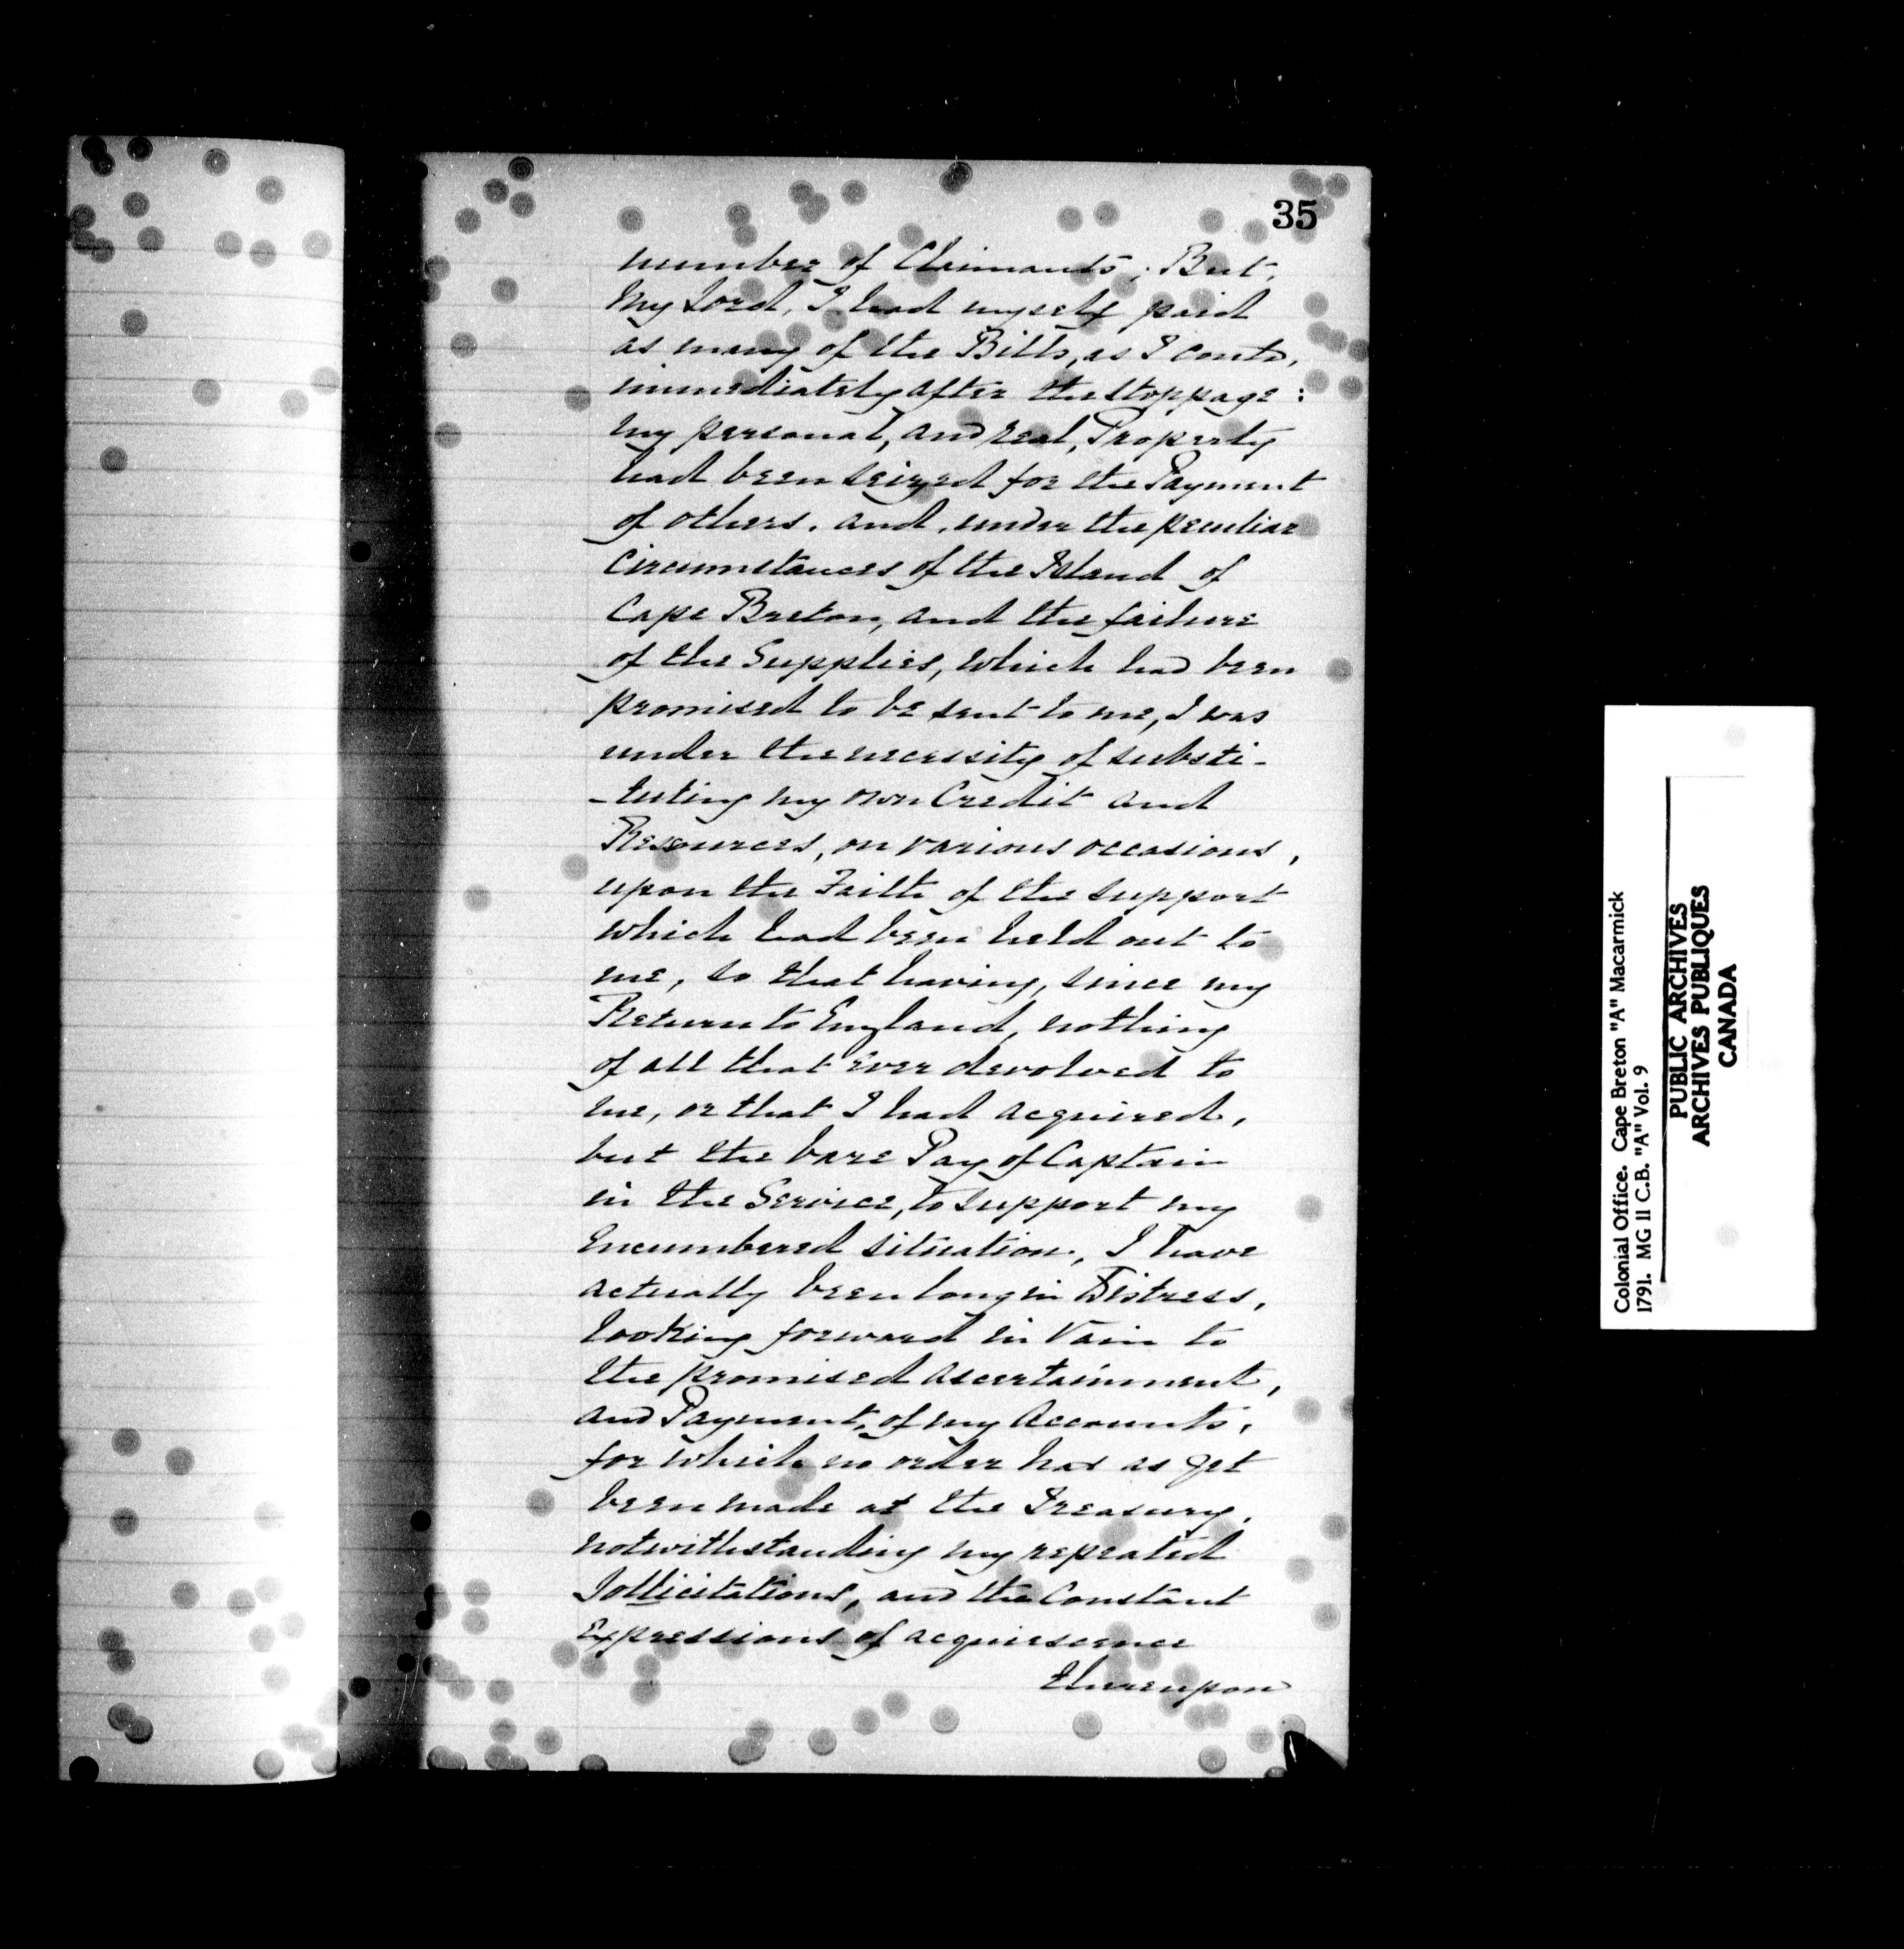 35
number of Claimants; But,
My Lord, I had myself paid
as many of the Bills, as I could,
immediately after the Stoppage:
my personal, and real, Property
had been seized for the Payment
of others. and, under the peculiar
Circumstances of the Island of
Cape Breton, and the failure
of the Supplies, which had been
promised to be sent to me, I was
under the necessity of substi-
-tuting my own Credit and
Resources, on various occasions,
upon the Faith of the support
which had been held out to
me, so that having, since my
Return to England, nothing
of all that ever devolved to
me, or that I had acquired,
but the bare Pay of Captain
in the Service, to support my
Encumbered situation, I have
actually been long in Distress,
looking forward in Vain to
the promised ascertainment,
and Payment, of my Accounts,
for which no order has as yet
been made at the Treasury,
notwithstanding my repeated
Sollicitations, and the Constant
Expressions of acquiescence
thereupon
Colonial Office. Cape Breton "A" Macarmick
1791. MG 11 C.B. "A" Vol. 9
PUBLIC ARCHIVES
ARCHIVES PUBLIQUES
CANADA